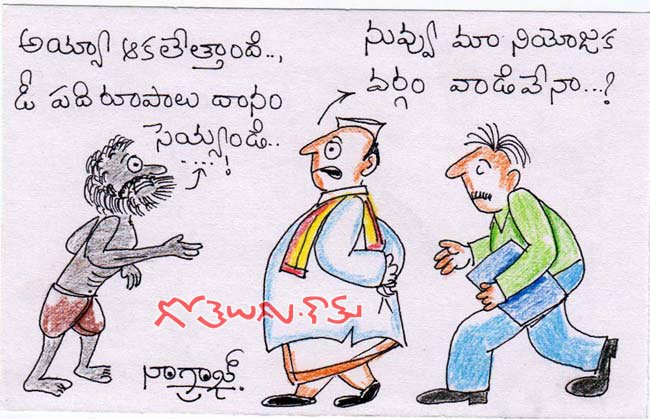 అయ్యా ఆకలేత్తాంది..,
ఓ పది రూపాలు దానం
సెయ్యండి..
....!
నువ్వు మా నియోజక
వర్గం వాడివేనా...?
గోతెలుగు.కామ్
నాగ్రాజ్.